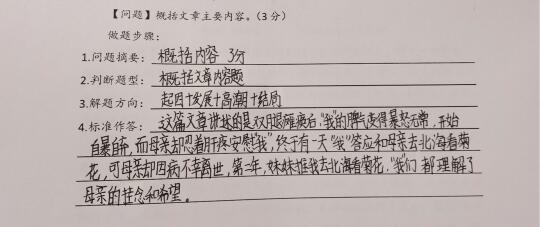 【问题】概括文章主要内容。（3 分）
做题步骤：
1.问题摘要： 概括内容 3分
2.判断题型： 概括文章内容题
3.解题方向： 起因+发展+高潮+结局
4.标准作答： 这篇文章讲述的是双腿瘫痪后，“我”的脾气变得暴怒无常，开始
自暴自弃，而母亲却忍着肝疼安慰“我”，终于有一天“我”答应和母亲去北海看菊
花，可母亲却因病不幸离世，第二年，妹妹推我去北海看菊花，“我们”都理解了
母亲的挂念和希望。